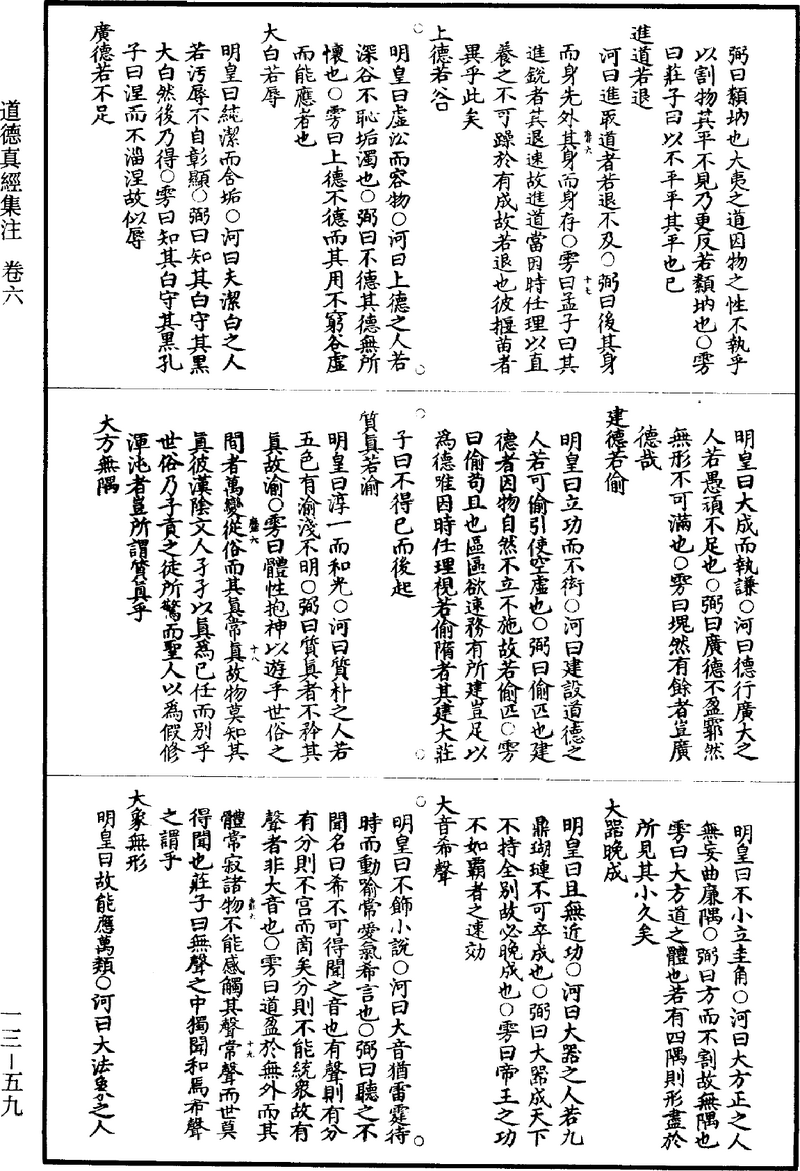 弼曰纇㘨也大夷之道因物之性不執乎
以割物其平不見乃更反若纇㘨也○雱
曰莊子曰以不平平其平也已
進道若退
河曰進取道者若退不及○弼曰後其身
而身先外其身而身存○雱曰孟子曰其
進銳者其退速故進道當因時任理以直
養之不可躁於有成故若退也彼揠苗者
異乎此矣
上德若谷
明皇曰虛泓而容物○河曰上德之人若
深谷不恥垢濁也○弼曰不德其德無所
懷也○雱曰上德不德而其用不窮谷虛
而能應者也
大白若辱
明皇曰純潔而含垢○河曰夫潔白之人
若污辱不自彰顯○弼曰知其白守其黑
大白然後乃得○雱曰知其白守其黑孔
子曰涅而不淄涅故似辱
廣德若不足
明皇曰大成而執謙○河曰德行廣大之
人若愚頑不足也○弼曰廣德不盈廓然
無形不可滿也○雱曰塊然有餘者豈廣
德哉
建德若偷
明皇曰立功而不衒○河曰建設道德之
人若可偷引使空虛也○弼曰偷匹也建
德者因物自然不立不施故若偷匹○雱
曰偷苟且也區區欲速務有所建豈足以
為德唯因時任理視若偷惰者其建大莊
子曰不得已而後起
質真若渝
明皇曰淳一而和光○河曰質朴之人若
五色有渝淺不明○弼曰質真者不矜其
真故渝○雱曰體性抱神以遊乎世俗之
間者萬變從俗而其真常真故物莫知其
真彼漢陰文人孑孑以真為己任而別乎
世俗乃子貢之徒所驚而聖人以為假修
渾沌者豈所謂質真乎
大方無隅
明皇曰不小立圭角○河曰大方正之人
無妄曲廉隅○弼曰方而不割故無隅也
雱曰大方道之體也若有四隅則形盡於
所見其小久矣
大器晚成
明皇曰且無近功○河曰大器之人若九
鼎瑚璉不可卒成也○弼曰大器成天下
不持全別故必晚成也○雱曰帝王之功
不如霸者之速効
大音希聲
明皇曰不飾小說○河曰大音猶雷霆待
時而動喻常愛氣希言也○弼曰聽之不
聞名曰希不可得聞之音也有聲則有分
有分則不宮而商矣分則不能統衆故有
聲者非大音也○雱曰道盈於無外而其
體常寂諸物不能感觸其聲常聲而世莫
得聞也莊子曰無聲之中獨聞和焉希聲
之謂乎
大象無形
明皇曰故能應萬類○河曰大法象之人
道德真經集注 卷六
一三—五九